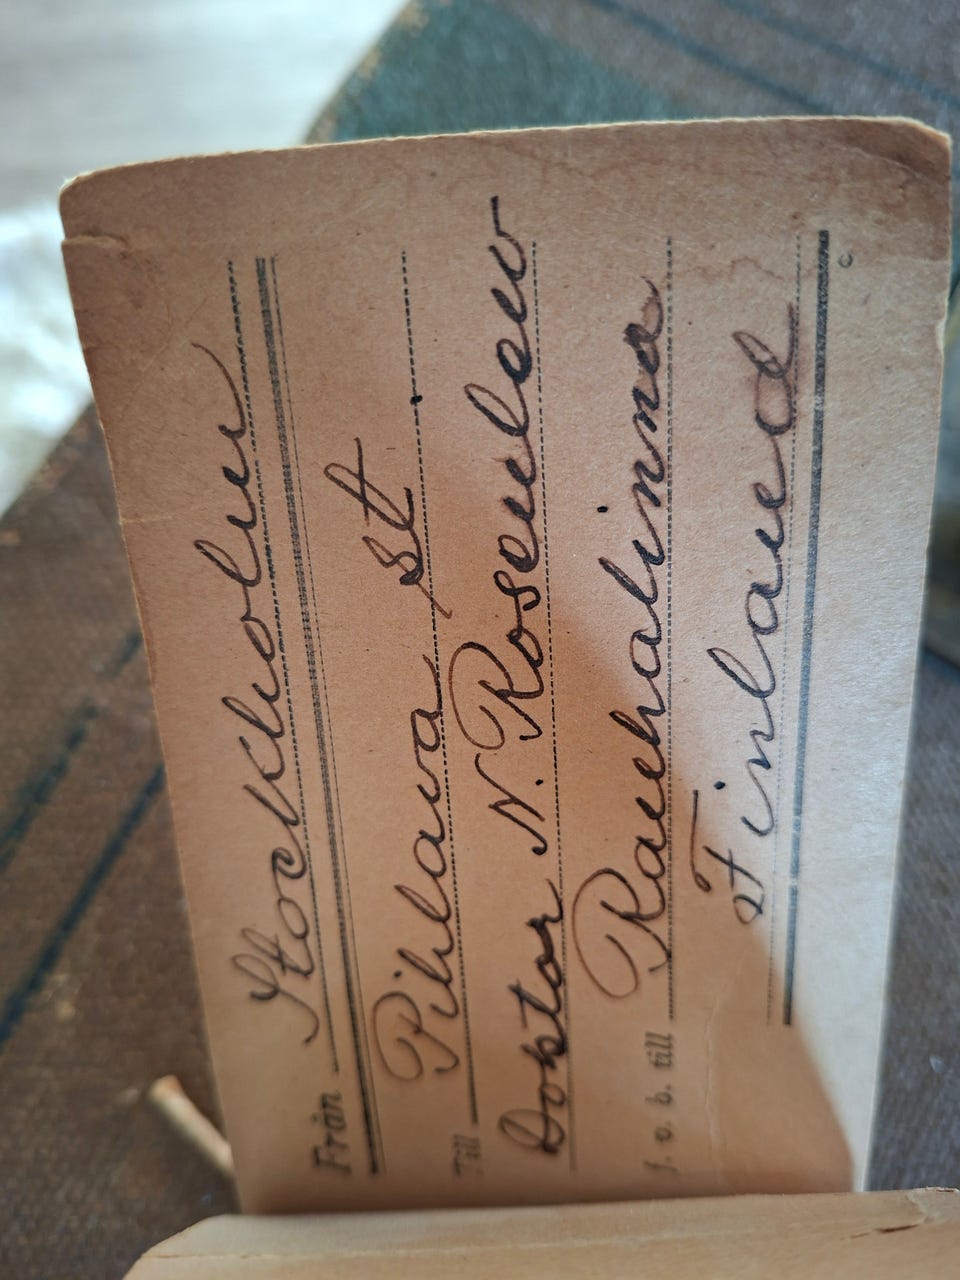 Från Stockholm
Till Pihlava St
Doktor N. Rosenlew
j. v. b. till Rauhalinna
Finland